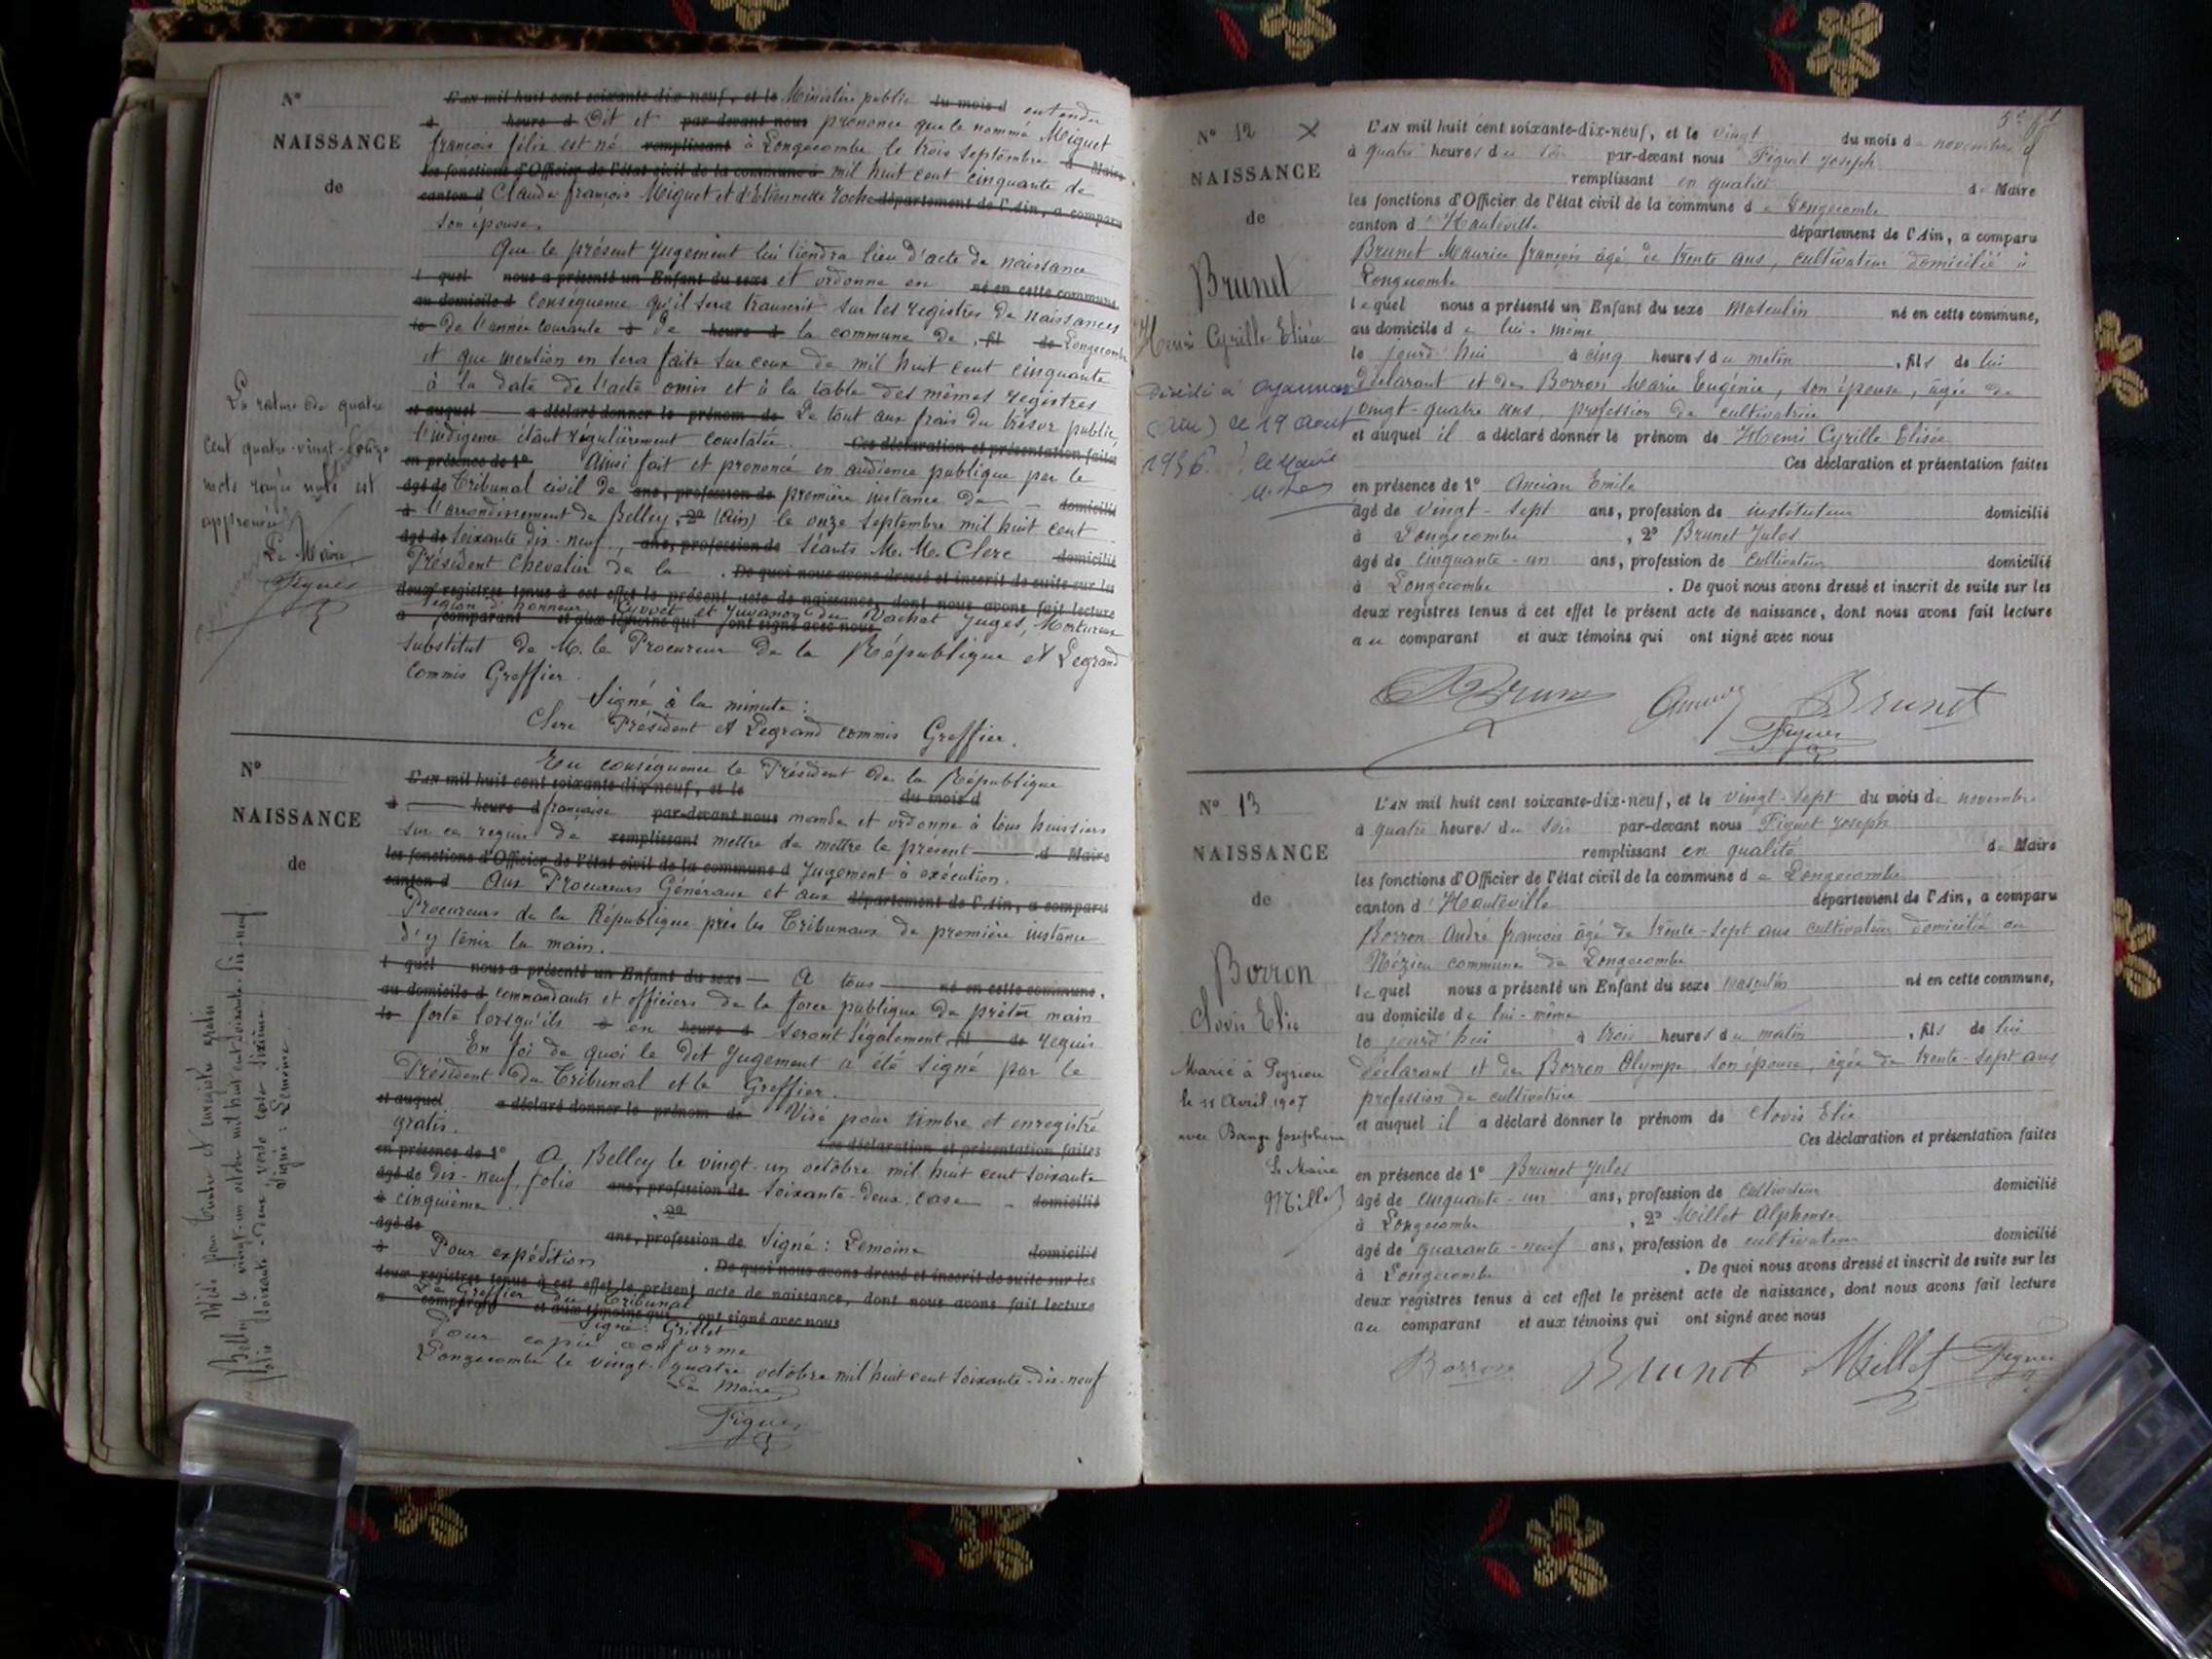 Nº
NAISSANCE
de
L'AN mil huit cent soixante-dix-neuf, et le Ministère public du mois d entendu
à heure d Dit et par-devant nous prononce que le nommé Miguet
françois félix est né remplissant à Longecombe le trois Septembre d Maire
les fonctions d'Officier de l'état civil de la commune d mil huit cent cinquante de
canton d Claude françois Miguet et d'Etiennette Roche département de l'Ain, a comparu
son épouse.
Que le présent Jugement lui tiendra lieu d'acte de naissance
l quel nous a présenté un Enfant du sexe et ordonne en né en cette commune,
au domicile d conséquence qu'il sera transcrit sur les registres de naissances
le de l'année courante à de heure d la commune de , fil de Longecombe
et que mention en sera faite sur ceux de mil huit cent cinquante
à la date de l'acte omis et à la table des mêmes registres
et auquel a déclaré donner le prénom de Le tout aux frais du trésor public,
l'indigence étant régulièrement constatée. Ces déclaration et présentation faites
en présence de 1º Ainsi fait et prononcé en audience publique par le
âgé de Tribunal civil de ans, profession de première instance de domicilié
à l'arrondissement de Belley, 2º (Ain) le onze Septembre mil huit cent
âgé de Soixante dix-neuf, ans, profession de Séants M. M. Clerc domicilié
Président Chevalier de la . De quoi nous avons dressé et inscrit de suite sur les
deux registres tenus à cet effet le présent acte de naissance, dont nous avons fait lecture
Légion d'honneur, et Juvanon du Vachat Juges,
a comparant et aux témoins qui ont signé avec nous
substitut de M. le Procureur de la République et Legrand
Commis Greffier.
Signé à la minute :
Clerc Président et Legrand commis Greffier.
La rature de quatre
cent quatre-vingt-
mots rayés nuls est
approuvée
Le Maire
Figuet
Nº
NAISSANCE
de
En conséquence le Président de la République
L'AN mil huit cent soixante-dix-neuf, et le du mois d
à heure d française par-devant nous mande et ordonne à tous huissiers
sur ce requis de remplissant mettre de mettre le présent d Maire
les fonctions d'Officier de l'état civil de la commune d Jugement à exécution.
canton d Aux Procureurs Généraux et aux département de l'Ain, a comparu
Procureurs de la République près les Tribunaux de première instance
d'y tenir la main.
l quel nous a présenté un Enfant du sexe A tous né en cette commune,
au domicile d commandants et officiers de la force publique de prêter main
le forte lorsqu'ils à en heure d seront légalement fil de requis
En foi de quoi le dit Jugement a été signé par le
Président du Tribunal et le Greffier.
et auquel a déclaré donner le prénom de Visé pour timbre et enregistré
gratis. Ces déclaration et présentation faites
en présence de 1º A Belley le vingt-un octobre mil huit cent soixante
âgé de dix-neuf, folio ans, profession de soixante-deux, case domicilié
à cinquième. , 2º
âgé de ans, profession de Signé : Lemoine domicilié
à Pour expédition . De quoi nous avons dressé et inscrit de suite sur les
deux registres tenus à cet effet le présent acte de naissance, dont nous avons fait lecture
Le Greffier du Tribunal
a comparant et aux témoins qui ont signé avec nous
Signé : Grillet
Pour copie conforme
Longecombe le vingt-quatre octobre mil huit cent soixante-dix-neuf
Le Maire
Figuet
Visé pour timbre et enregistré gratis
Belley le vingt-un octobre mil huit cent soixante-dix-neuf
folio soixante-deux, verso case
Signé : Lemoine
Nº 12 X
NAISSANCE
de
Brunet
Henri Cyrille Elisée
Décédé à Oyonnax
(Ain) le 19 Août
1956. Le Maire
L'AN mil huit cent soixante-dix-neuf, et le vingt du mois de novembre
à quatre heures du soir par-devant nous Figuet Joseph
remplissant en qualité de Maire
les fonctions d'Officier de l'état civil de la commune de Longecombe
canton d'Hauteville département de l'Ain, a comparu
Brunet Maurice françois âgé de trente ans, cultivateur domicilié à
Longecombe
lequel nous a présenté un Enfant du sexe masculin né en cette commune,
au domicile de lui-même
le jourd'hui à cinq heures du matin , fils de lui
déclarant et de Borron Marie Eugénie, son épouse, âgée de
vingt-quatre ans, profession de cultivatrice
et auquel il a déclaré donner le prénom de Henri Cyrille Elisée
Ces déclaration et présentation faites
en présence de 1º Ancian Emile
âgé de vingt-sept ans, profession de instituteur domicilié
à Longecombe , 2º Brunet Jules
âgé de cinquante-un ans, profession de cultivateur domicilié
à Longecombe . De quoi nous avons dressé et inscrit de suite sur les
deux registres tenus à cet effet le présent acte de naissance, dont nous avons fait lecture
au comparant et aux témoins qui ont signé avec nous
Brunet
Figuet
Nº 13
NAISSANCE
de
Borron
Clovis Elie
Marié à Peyrieu
le 11 Avril 1907
avec Bange Joséphine
Le Maire
Millet
L'AN mil huit cent soixante-dix-neuf, et le vingt-sept du mois de novembre
à quatre heures du soir par-devant nous Figuet Joseph
remplissant en qualité de Maire
les fonctions d'Officier de l'état civil de la commune de Longecombe
canton d'Hauteville département de l'Ain, a comparu
Borron André françois âgé de trente-sept ans cultivateur domicilié au
Nézieu commune de Longecombe
lequel nous a présenté un Enfant du sexe masculin né en cette commune,
au domicile de lui-même
le jourd'hui à trois heures du matin , fils de lui
déclarant et de Borron Olympe son épouse, âgée de trente-sept ans
profession de cultivatrice
et auquel il a déclaré donner le prénom de Clovis Elie
Ces déclaration et présentation faites
en présence de 1º Brunet Jules
âgé de cinquante-un ans, profession de cultivateur domicilié
à Longecombe , 2º Millet Alphonse
âgé de quarante-neuf ans, profession de cultivateur domicilié
à Longecombe . De quoi nous avons dressé et inscrit de suite sur les
deux registres tenus à cet effet le présent acte de naissance, dont nous avons fait lecture
au comparant et aux témoins qui ont signé avec nous
Borron Brunet Millet Figuet